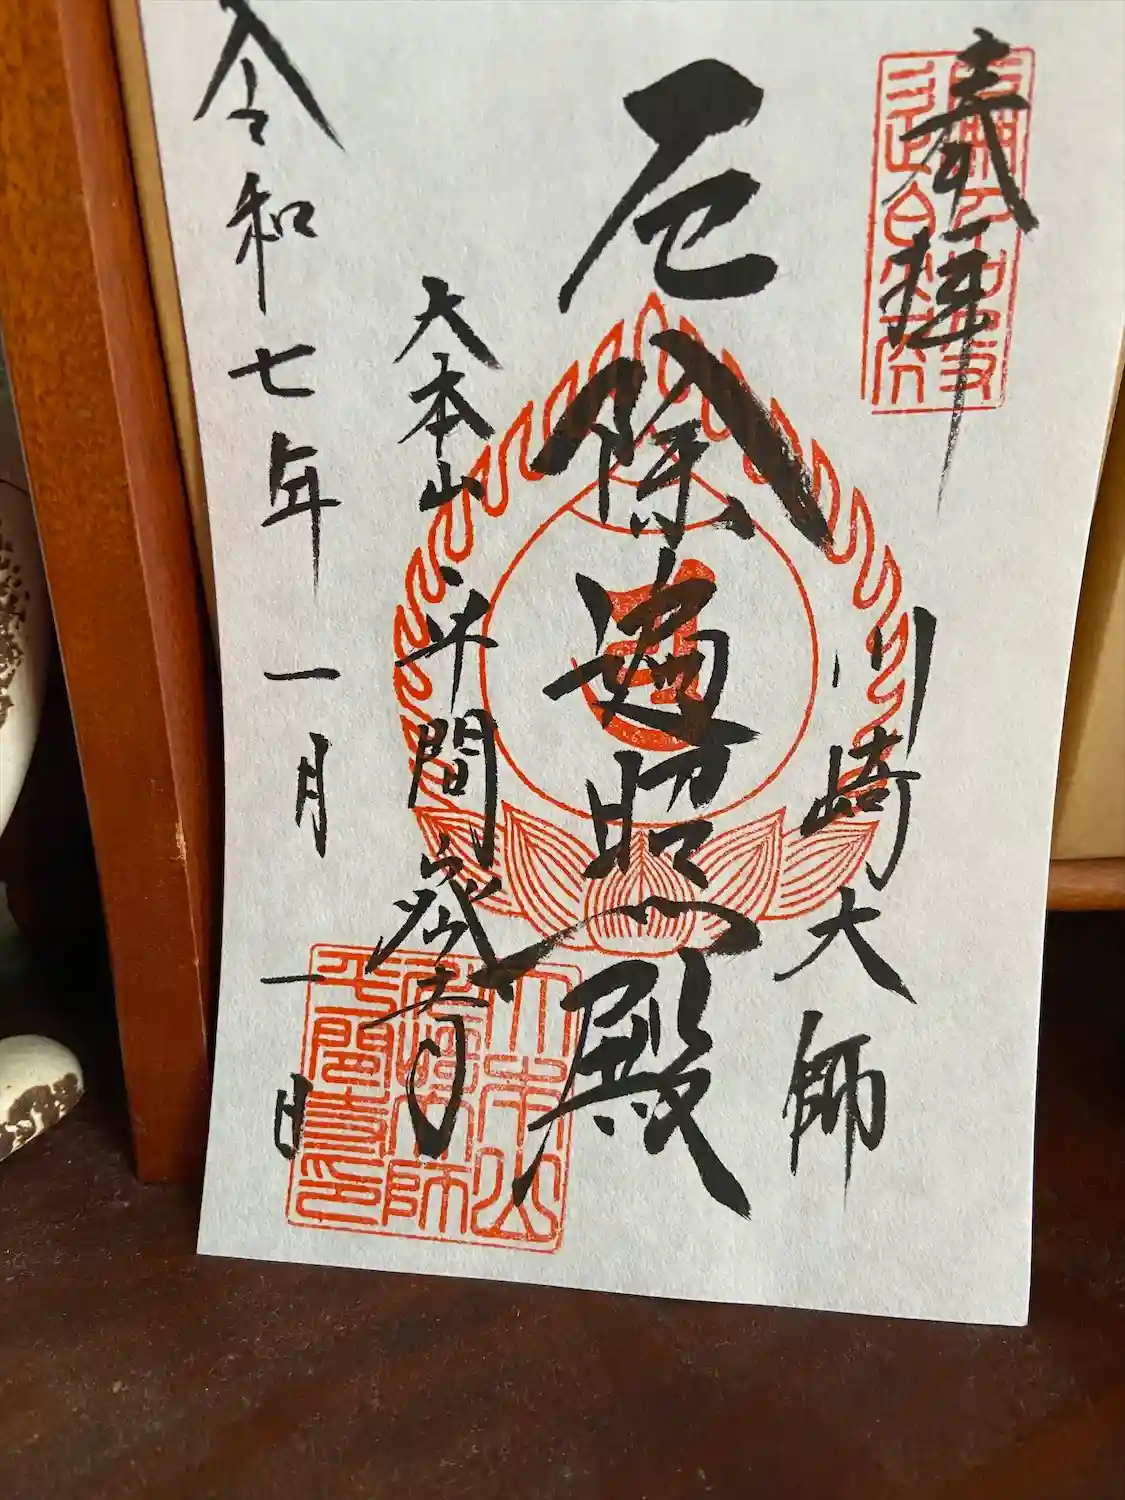 奉拝
川崎大師
厄除遍照殿
大本山 平間密寺
令和七年一月一日
大本山
川崎大師
平間寺印